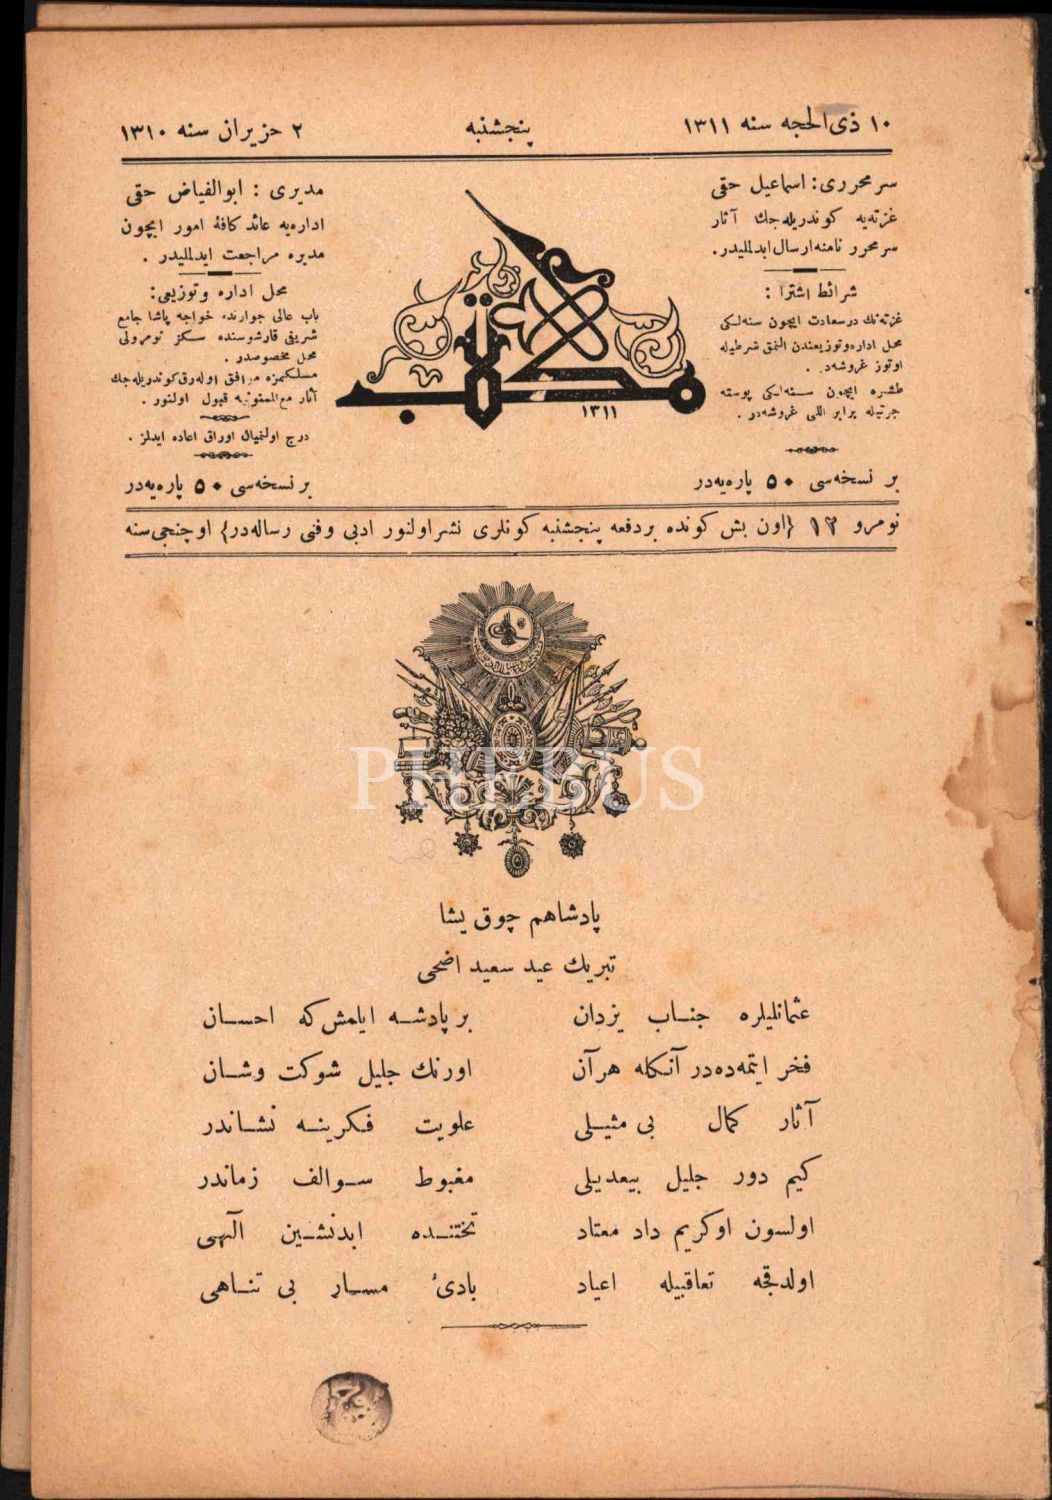 ١٠ ذی‌الحجه سنه ١٣١١
پنجشنبه
٢ حزیران سنه ١٣١٠
سر محرری : اسماعیل حقی
غزته‌یه کوندریله‌جك آثار
سر محرر نامنه ارسال ایدلملیدر.
شرائط اشترا :
غزته‌نك درسعادت ایچون سنه‌لکی
محل اداره و توزیعندن النمق شرطیله
اوتوز غروشه‌در .
طشره ایچون سنه‌لکی پوسته
برابر اللی غروشه‌در .
بر نسخه‌سی ٥٠ پاره‌یه‌در
مكتب
١٣١١
مدیری : ابوالفیاض حقی
اداره‌یه عائد کافهٔ امور ایچون
مدیره مراجعت ایدلملیدر .
محل اداره و توزیعی:
باب عالی جوارنده خواجه پاشا جامع
شریفی قارشوسنده سکز نومرولی
محل مخصوصدر .
مسلکمزه موافق اوله‌رق کوندریله‌جك
آثار مع‌الممنونیه قبول اولنور .
درج اولنمیان اوراق اعاده ایدلز .
بر نسخه‌سی ٥٠ پاره‌یه‌در
نومرو ١٢ {اون بش کونده بر دفعه پنجشنبه کونلری نشر اولنور ادبی وفنی رساله‌در} اوچنجی سنه
PHEBUS
پادشاهم چوق یشا
تبریك عید سعید اضحی
عثمانلیلره جناب یزدان بر پادشه ایلمش که احسان
فخر ایتمه‌ده‌در آنکله هرآن اورنك جلیل شوکت وشان
آثار کمال بی مثیلی علویت فکرینه نشاندر
کیم دور جلیل بیعدیلی مغبوط سوالف زماندر
اولسون اوکریم داد معتاد تختنده ابدنشین آلهی
اولدقجه تعاقبیله اعیاد بادئ مسار بی تناهی